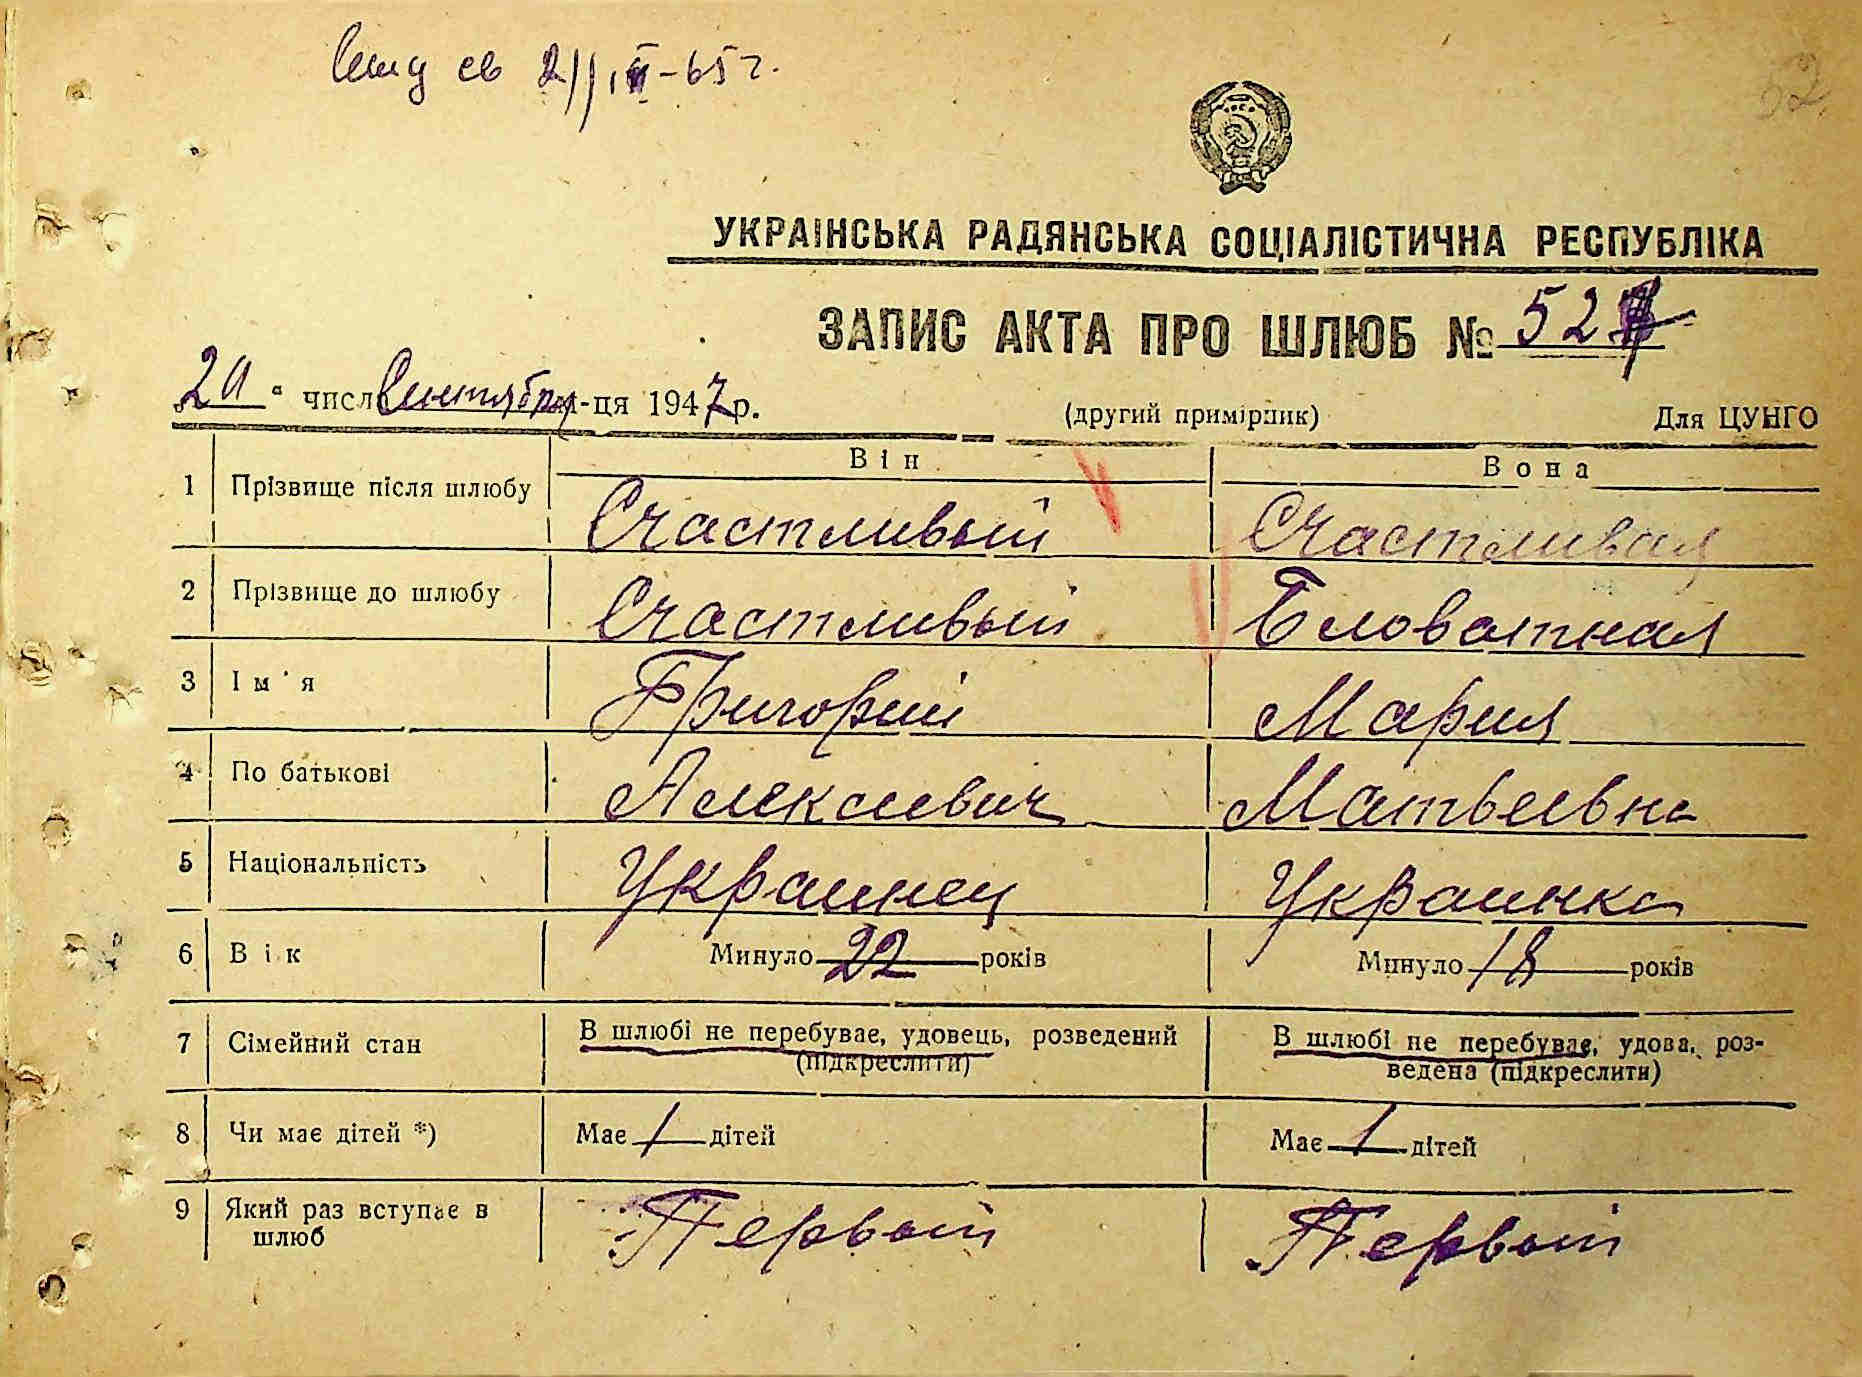 св 2/III-65г.
52
УКРАІНСЬКА РАДЯНСЬКА СОЦІАЛІСТИЧНА РЕСПУБЛІКА
ЗАПИС АКТА ПРО ШЛЮБ № 52
" числ Сентября м-ця 1947 р. (другий примірник) Для ЦУНГО
Він Вона
1 Прізвище після шлюбу Счастливый Счастливая
2 Прізвище до шлюбу Счастливый Бловатная
3 Ім'я Григорий Мария
4 По батькові Алексеевич Матвеевна
5 Національність Украинец Украинка
6 Вік Минуло 22 років Минуло 18 років
7 Сімейний стан В шлюбі не перебуває, удовець, розведений В шлюбі не перебуває, удова, роз-
(підкреслити) ведена (підкреслити)
8 Чи має дітей *) Має / дітей Має / дітей
9 Який раз вступає в Первый Первый
шлюб